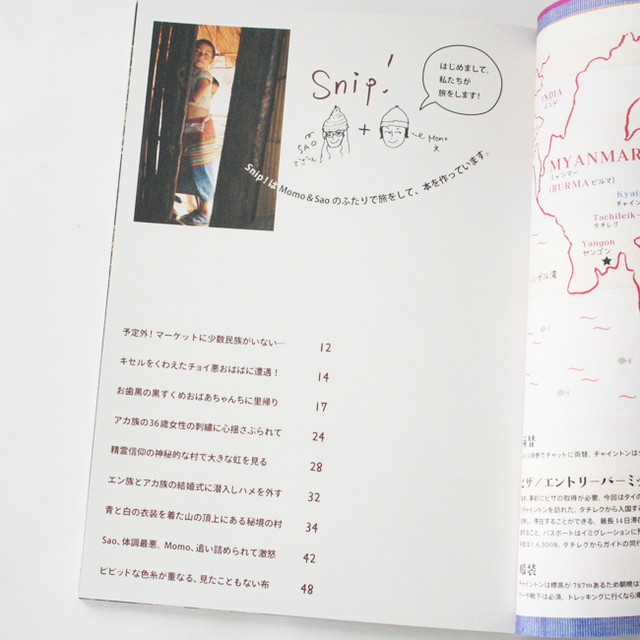 Snip!
はじめまして、
私たちが
旅をします!
SAO
+
Momo
え
Snip!はMomo&Saoのふたりで旅をして、本を作っています。
予定外!マーケットに少数民族がいない… 12
キセルをくわえたチョイ悪おばばに遭遇! 14
お歯黒の黒ずくめおばあちゃんちに里帰り 17
アカ族の36歳女性の刺繍に心揺さぶられて 24
精霊信仰の神秘的な村で大きな虹を見る 28
エン族とアカ族の結婚式に潜入しハメを外す 32
青と白の衣装を着た山の頂上にある秘境の村 34
Sao、体調最悪。Momo、追い詰められて激怒 42
ビビッドな色糸が重なる、見たこともない布 48
INDIA
インド
MYANMAR
ミャンマー
(BURMA ビルマ)
Kyai
チャイン
Tachileik
タチレク
Yangon
ヤンゴン
ンガル湾
両替
ビザ/エントリーパーミッ
服装
チャイントンは標高が787mあるため朝晩は